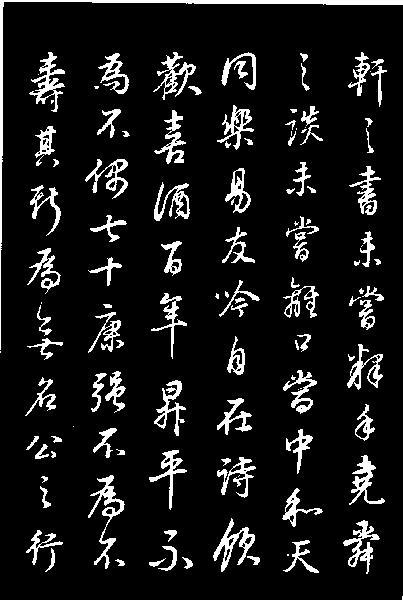 軒之書未嘗釋手堯舜
之談未嘗離口當中和天
同樂易友吟自在詩飲
歡喜酒百年昇平不
為不偶七十康强不為不
壽其斯為無名公之行